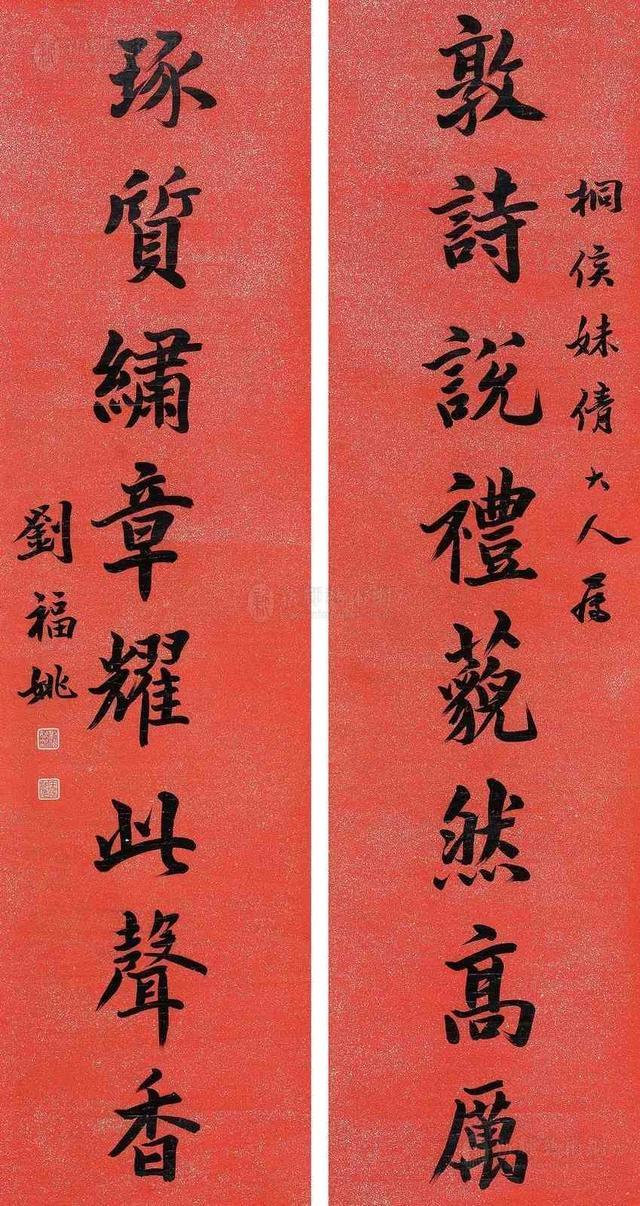 桐侯妹倩大人属
敦詩說禮藐然高厲
琢質繡章耀此聲香
劉福姚